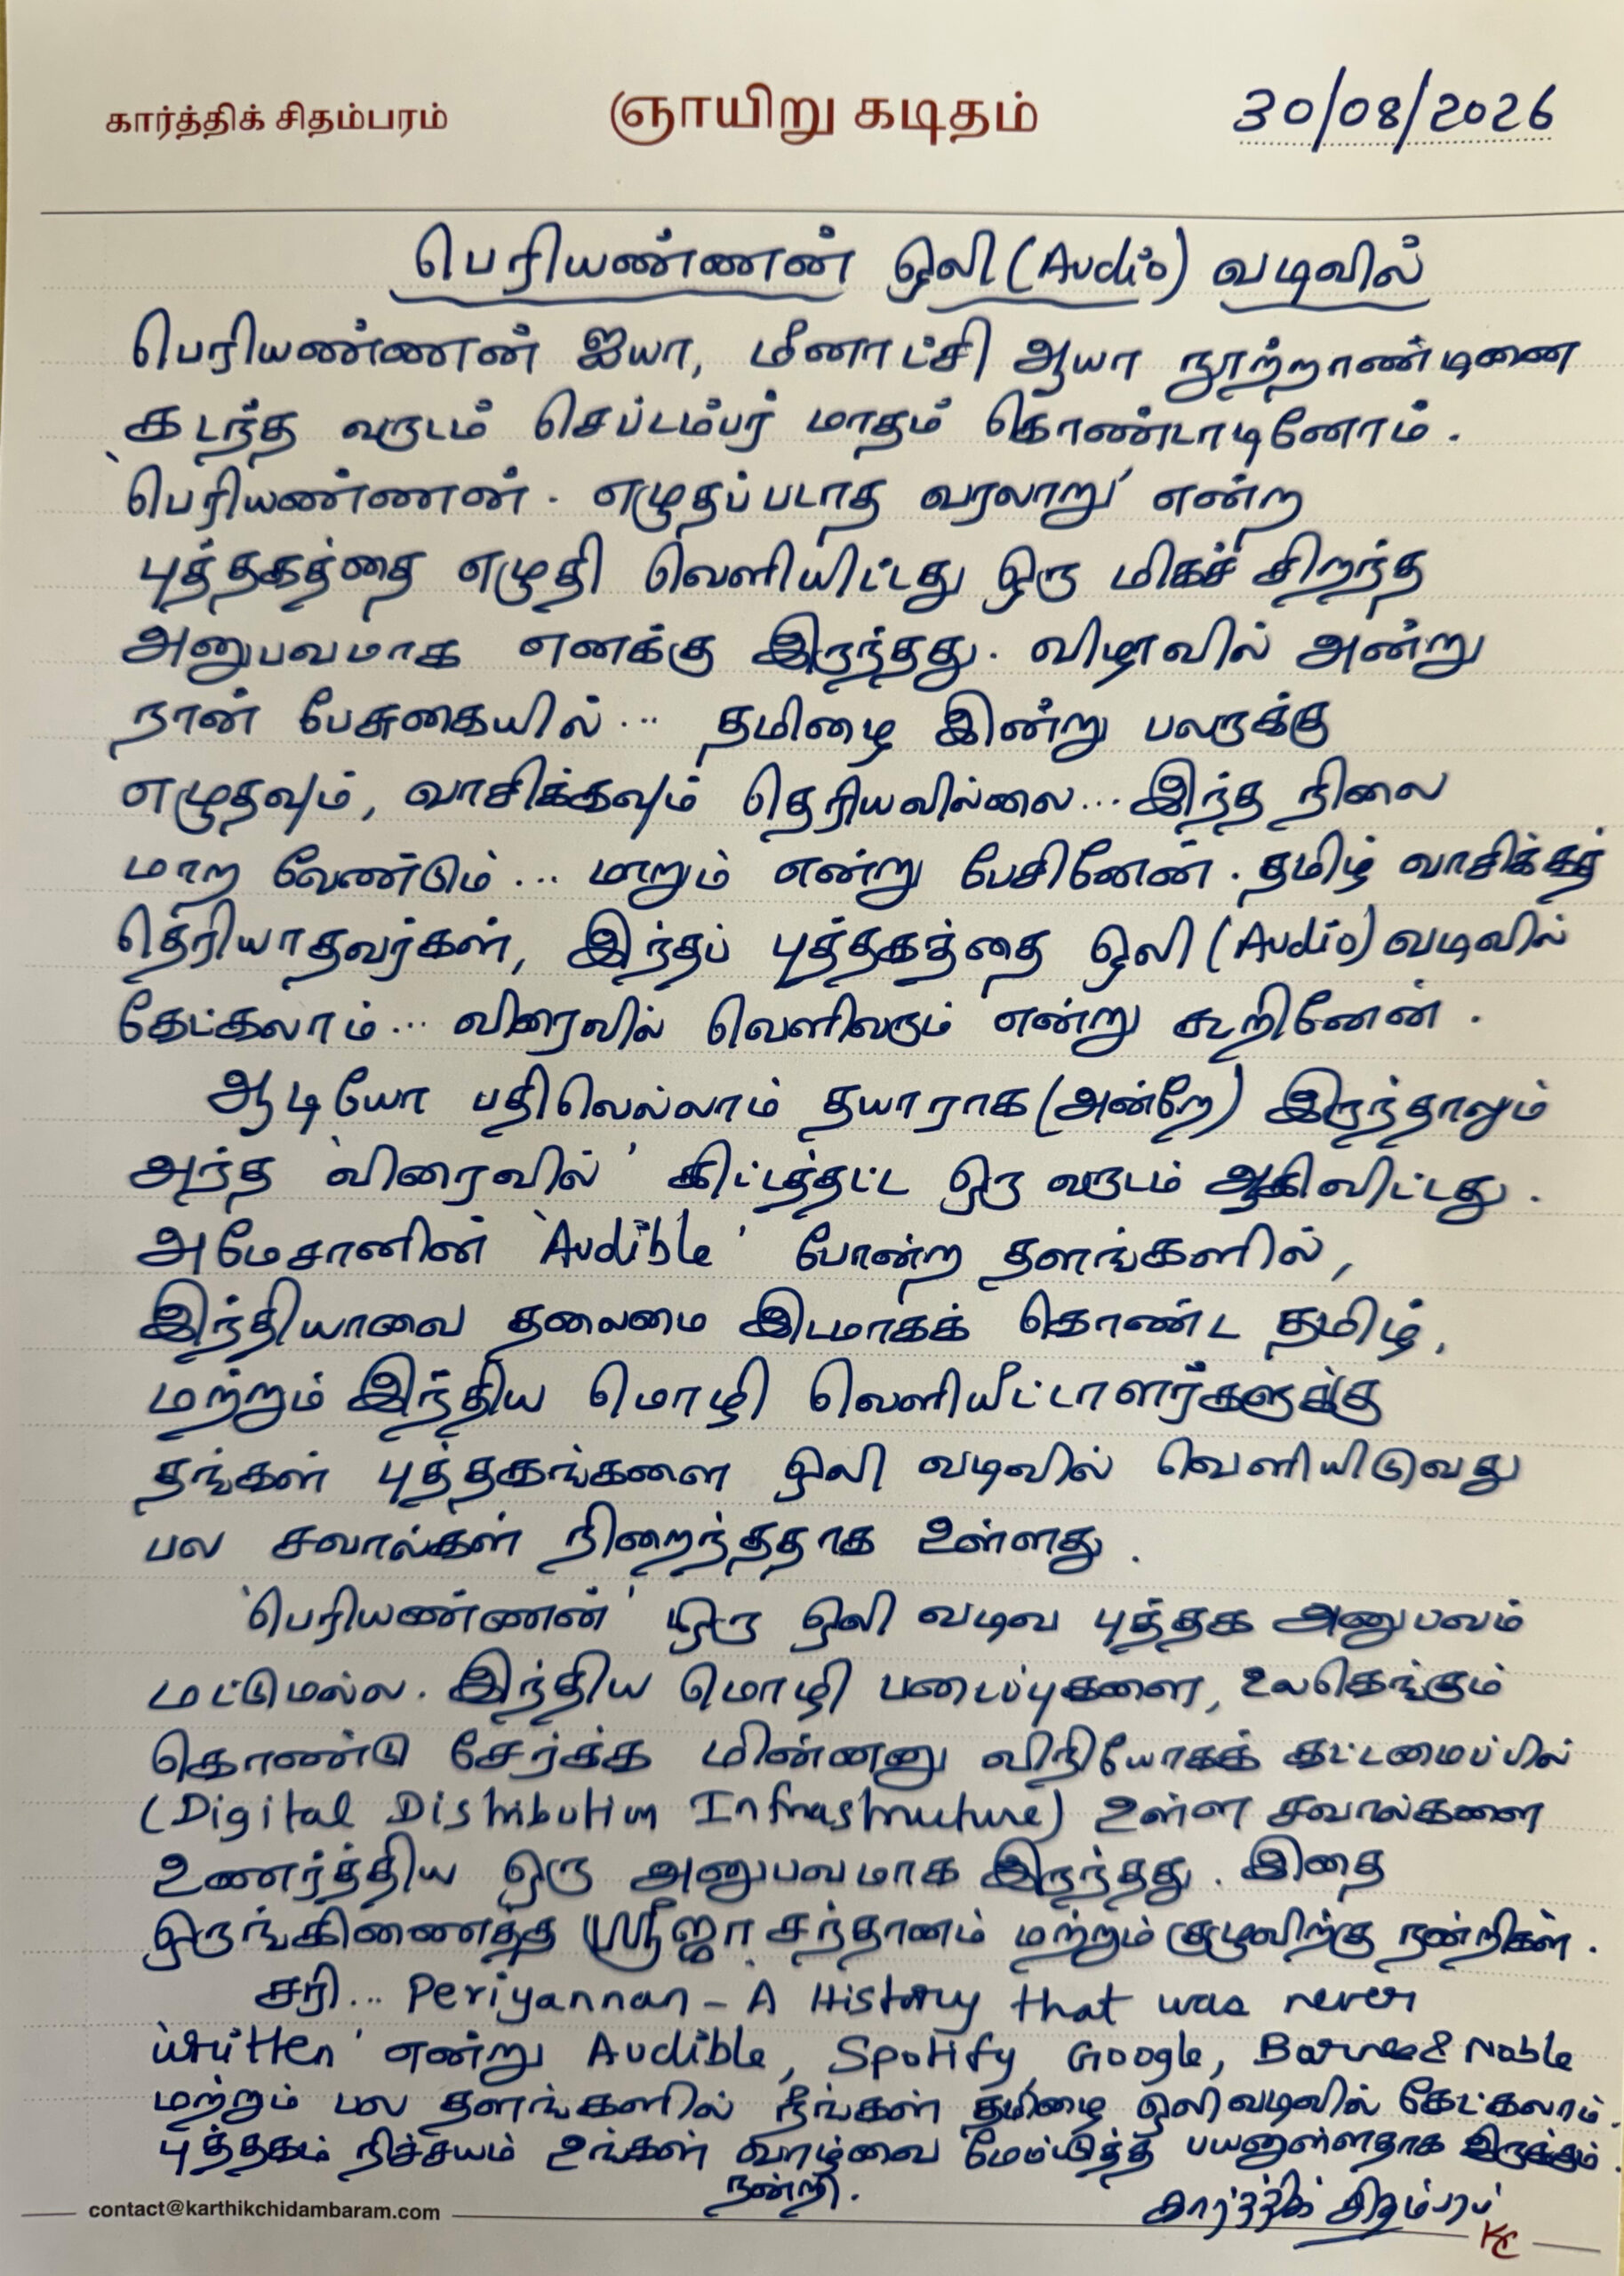 கார்த்திக் சிதம்பரம் ஞாயிறு கடிதம் 30/08/2026
பெரியண்ணன் ஒலி (Audio) வடிவில்
பெரியண்ணன் ஐயா, மீனாட்சி ஆயா நூற்றாண்டினை
கடந்த வருடம் செப்டம்பர் மாதம் கொண்டாடினோம்.
'பெரியண்ணன் - எழுதப்படாத வரலாறு' என்ற
புத்தகத்தை எழுதி வெளியிட்டது ஒரு மிகச் சிறந்த
அனுபவமாக எனக்கு இருந்தது. விழாவில் அன்று
நான் பேசுகையில்... தமிழை இன்று பலருக்கு
எழுதவும், வாசிக்கவும் தெரியவில்லை... இந்த நிலை
மாற வேண்டும்... மாறும் என்று பேசினேன். தமிழ் வாசிக்கத்
தெரியாதவர்கள், இந்தப் புத்தகத்தை ஒலி (Audio) வடிவில்
கேட்கலாம்... விரைவில் வெளிவரும் என்று கூறினேன்.
ஆடியோ பதிவெல்லாம் தயாராக (அன்றே) இருந்தாலும்
அந்த 'விரைவில்' கிட்டத்தட்ட ஒரு வருடம் ஆகிவிட்டது.
அமேசானின் 'Audible' போன்ற தளங்களில்,
இந்தியாவை தலைமை இடமாகக் கொண்ட தமிழ்,
மற்றும் இந்திய மொழி வெளியீட்டாளர்களுக்கு
தங்கள் புத்தகங்களை ஒலி வடிவில் வெளியிடுவது
பல சவால்கள் நிறைந்ததாக உள்ளது.
'பெரியண்ணன்' ஒரு ஒலி வடிவ புத்தக அனுபவம்
மட்டுமல்ல. இந்திய மொழி படைப்புகளை, உலகெங்கும்
கொண்டு சேர்க்க மின்னனு விநியோகக் கட்டமைப்பில்
(Digital Distribution Infrastructure) உள்ள சவால்களை
உணர்த்திய ஒரு அனுபவமாக இருந்தது. இதை
ஒருங்கிணைத்த ஸ்ரீஜா சந்தானம் மற்றும் குழுவிற்கு நன்றிகள்.
சரி... Periyannan - A History that was never
written' என்று Audible, Spotify, Google, Barnes & Noble
மற்றும் பல தளங்களில் நீங்கள் தமிழை ஒலி வடிவில் கேட்கலாம்.
புத்தகம் நிச்சயம் உங்கள் வாழ்வை மேம்படுத்த பயனுள்ளதாக இருக்கும்.
நன்றி.
கார்த்திக் சிதம்பரம்
KC
contact@karthikchidambaram.com